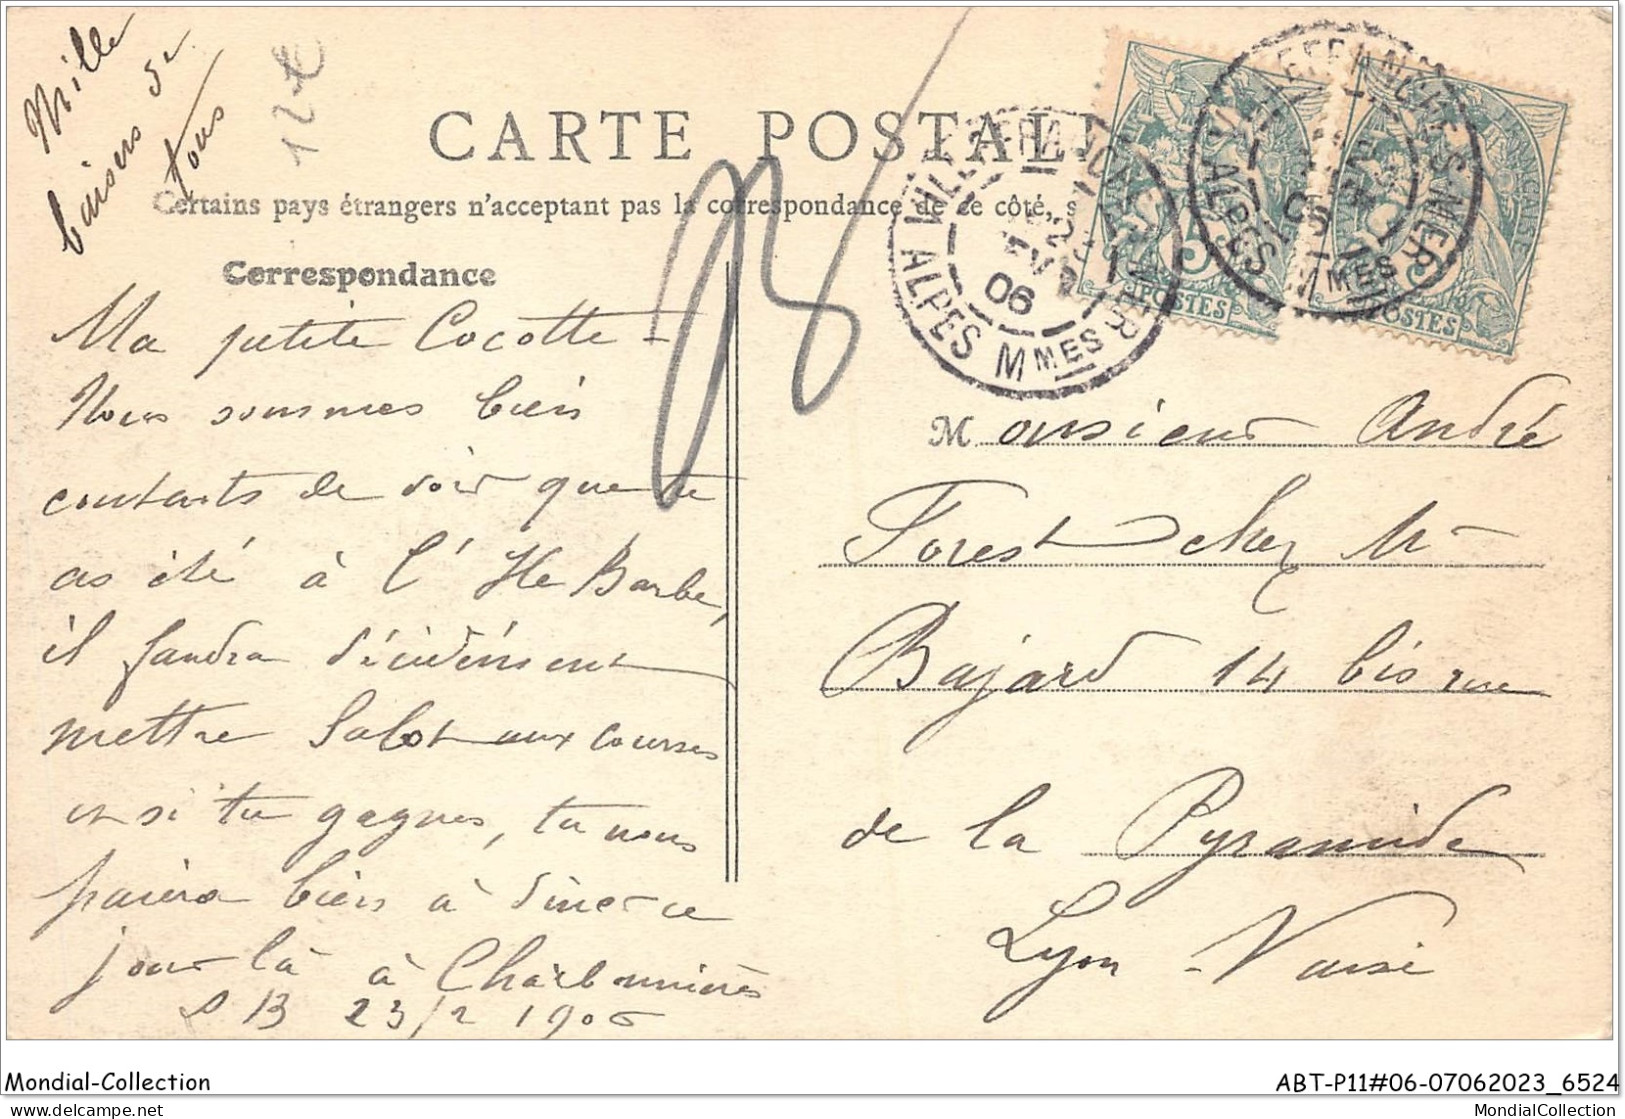 Mille
baisers de
tous
12€
CARTE POSTALE
Certains pays étrangers n'acceptent pas la correspondance de ce côté, s
Correspondance
Ma petite Cocotte -
Nous sommes bien
contents de voir que tu
as été à l'Ile Barbe,
il faudra décidément
mettre Sabot aux courses
et si tu gagnes, tu nous
paiera bien à dîner ce
jour là à Charbonnières
S B 23/2 1906
VILLEFRANCHE-S-MER
06
ALPES MMES
VILLEFRANCHE-S-MER
06
ALPES MMES
5
POSTES
FRANÇAISE
POSTES
Monsieur André
Forest chez Mr
Bajard 14 bis rue
de la Pyramide
Lyon - Vaise
Mondial-Collection
ABT-P11#06-07062023_6524
www.delcampe.net
MondialCollection